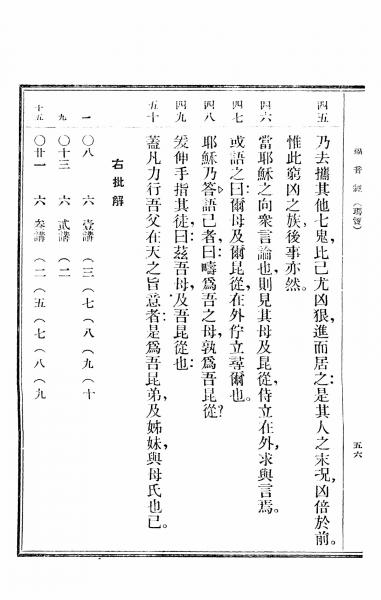 福音經（瑪竇） 五六
四五 乃去攜其他七鬼,比己尤凶狠,進而居之:是其人之末况,凶倍於前。
惟此窮凶之族,後事亦然。
四六 當耶穌之向衆言論也,則見其母及昆從,侍立在外,求與言焉。
四七 或語之曰:爾母及爾昆從,在外佇立尋爾也。
四八 耶穌乃答語己者曰:疇爲吾之母,孰爲吾昆從?
四九 爰伸手指其徒,曰:茲吾母,及吾昆從也:
五十 蓋凡力行吾父在天之旨意者:是爲吾昆弟,及姊妹,與母氏也已。
右批解
一 〇八 六 壹講 (三(七(八(九(十
九 〇十三 六 貳講 (二
十五 〇廿一 六 叁講 (二(五(七(八(九